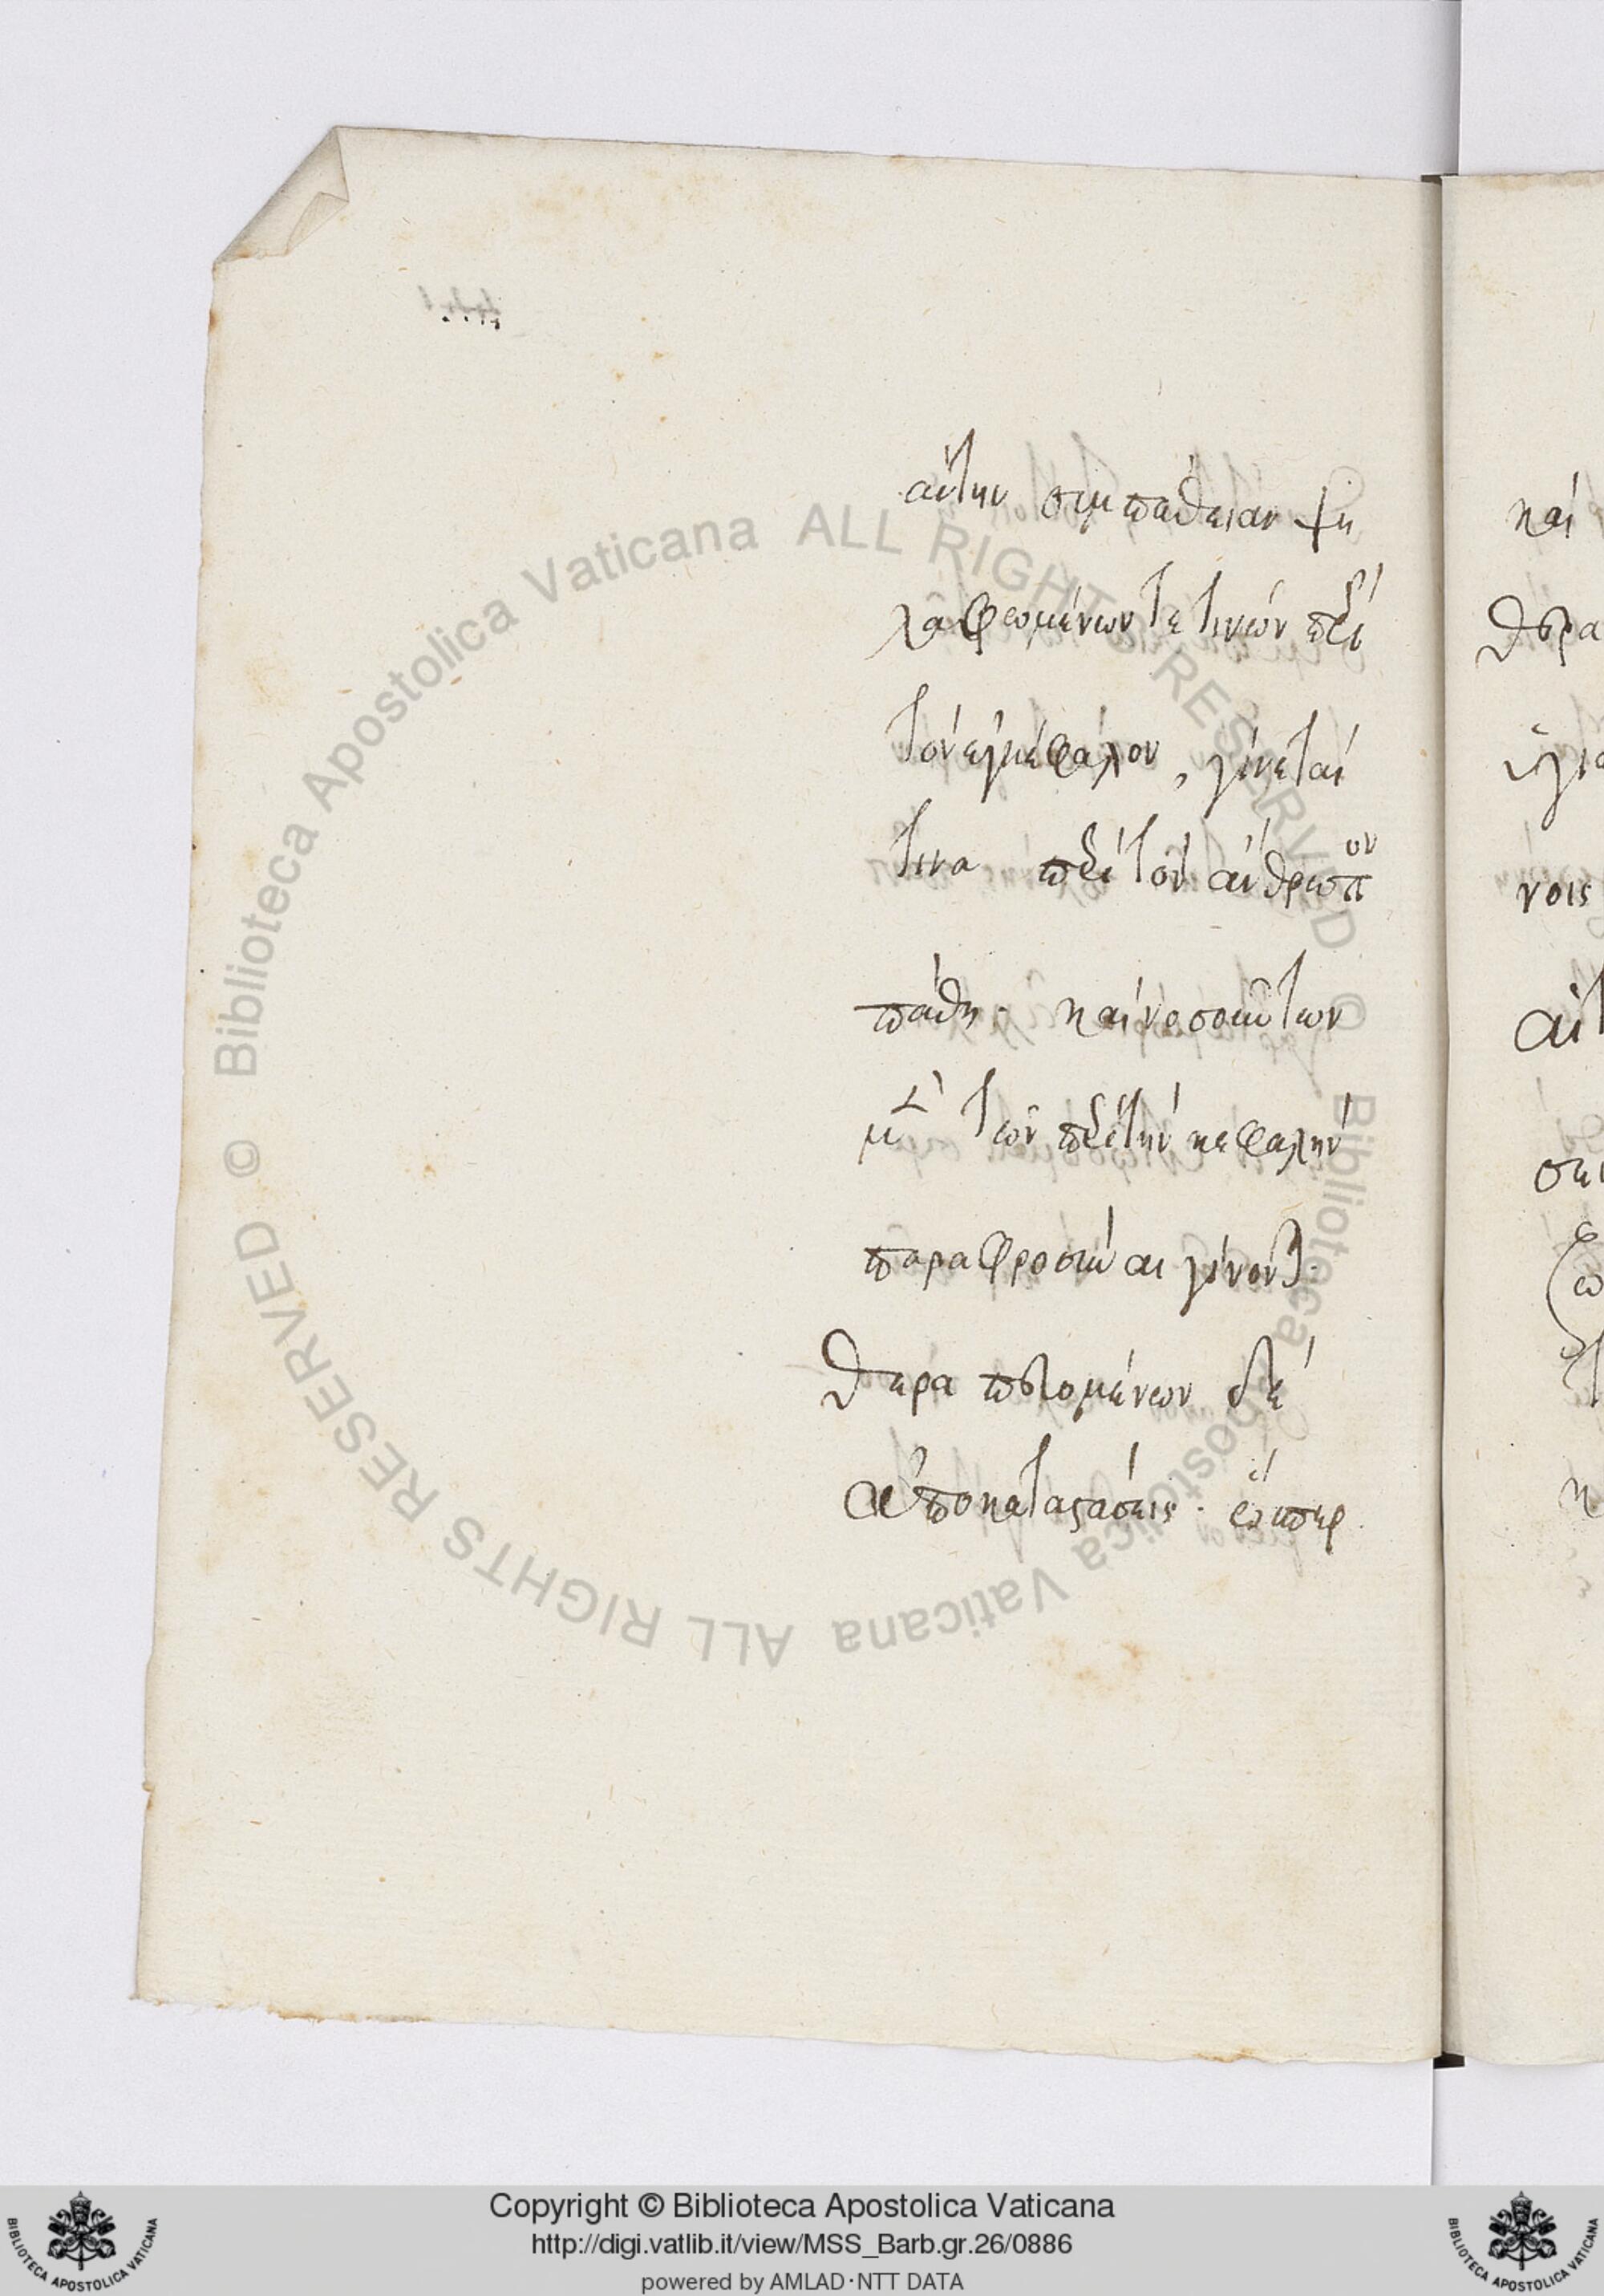 αὐτὴν συμπάθειαν ψη
λαφωμένων τε τινῶν περὶ
τὸν ἐγκέφαλον, γίνεται
τινα περὶ τὸν ἄνθρωπον
πάθη. καὶ νοσούντων
μὲν τῶν περὶ τὴν κεφαλὴν
παραφροσύναι γίνονται.
θεραπευομένων δὲ
ἀποκαταστάσεις. εἴπερ
καὶ
θερα
νοις
Biblioteca Apostolica Vaticana ALL RIGHTS RESERVED © Biblioteca Apostolica Vaticana ALL RIGHTS RESERVED ©
Copyright © Biblioteca Apostolica Vaticana
http://digi.vatlib.it/view/MSS_Barb.gr.26/0886
powered by AMLAD·NTT DATA
BIBLIOTECA APOSTOLICA VATICANA
BIBLIOTECA APOSTOLICA VATICANA